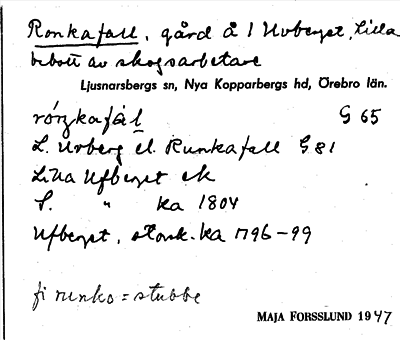 Ronkafall, gård å 1 Uvberget, Lilla
bebott av skogsarbetare
Ljusnarsbergs sn, Nya Kopparbergs hd, Örebro län.
G 65
L. Uvberg el. Runkafall G 81
Lilla Ufberget ek
S. " ka 1804
Ufberget, storsk. ka 1796-99
fi runko = stubbe
MAJA FORSSLUND 1947